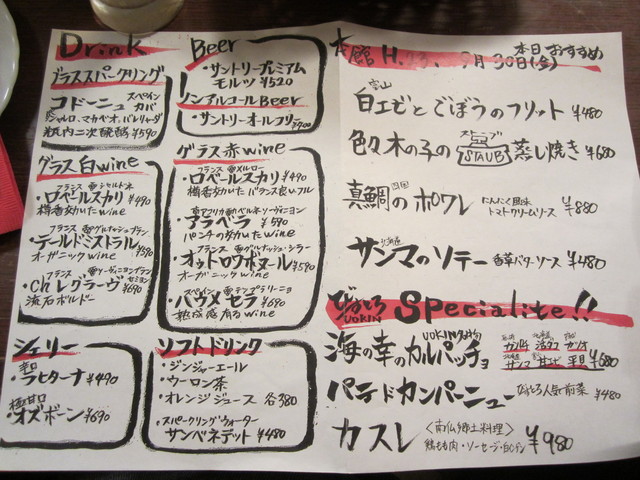 Drink
グラススパークリング
コドーニュ スペイン カバ
チャレロ、マカベオ、パレリャーダ
瓶内二次醗酵 ¥590
Beer
・サントリープレミアム
モルツ ¥520
ノンアルコールBeer
・サントリーオールフリー
グラス白wine
フランス
・ロベールスカリ ¥490
樽香効いたwine
フランス
・テールドミストラル ¥590
オーガニックwine
フランス
・ch レグラーヴ ¥690
流石ボルドー
グラス赤wine
フランス メルロー
・ロベールスカリ ¥490
樽香効いたバランス良いフル
南アフリカ カベルネソーヴィニヨン
・アラベラ ¥590
パンチの効いたwine
フランス グルナッシュ・シラー
・オットロワボヌール ¥590
オーガニックwine
スペイン テンプラリーニョ
・バウメセラ ¥690
熟成感有るwine
シェリー
辛口
・ラヒターナ ¥490
極甘口
・オズボーン ¥690
ソフトドリンク
・ジンジャーエール
・ウーロン茶
・オレンジジュース 各380
スパークリングウォーター
・サンベネデット ¥480
本館 H.23. 9月30日(金) 本日おすすめ
富山
白エビとごぼうのフリット ¥480
色々木の子の STAUB 蒸し焼き ¥680
真鯛のポワレ 四国 にんにく風味 トマトクリームソース ¥880
北海道
サンマのソテー 香草バターソース ¥480
びすとろ UOKIN Specialite!!
海の幸のカルパッチョ サンマ 平目 ¥680
パテドカンパーニュー びすとろ人気で前菜 ¥480
カスレ 〈南仏郷土料理〉 鶏もも肉・ソーセージ・白インゲン ¥980